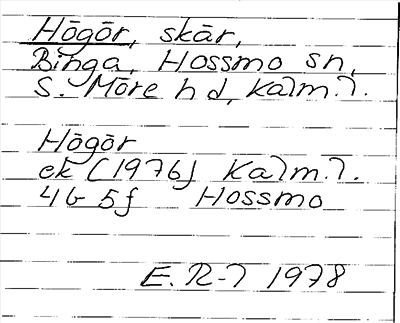 Högör, skär,
Binga, Hossmo sn,
S. Möre hd, Kalm. l.
Högör
ek (1976) Kalm. l.
4G 5f Hossmo
E. R-l 1978